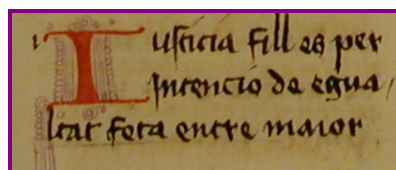 Iusticia fill es per
intencio de egua
ltat feta entre maior